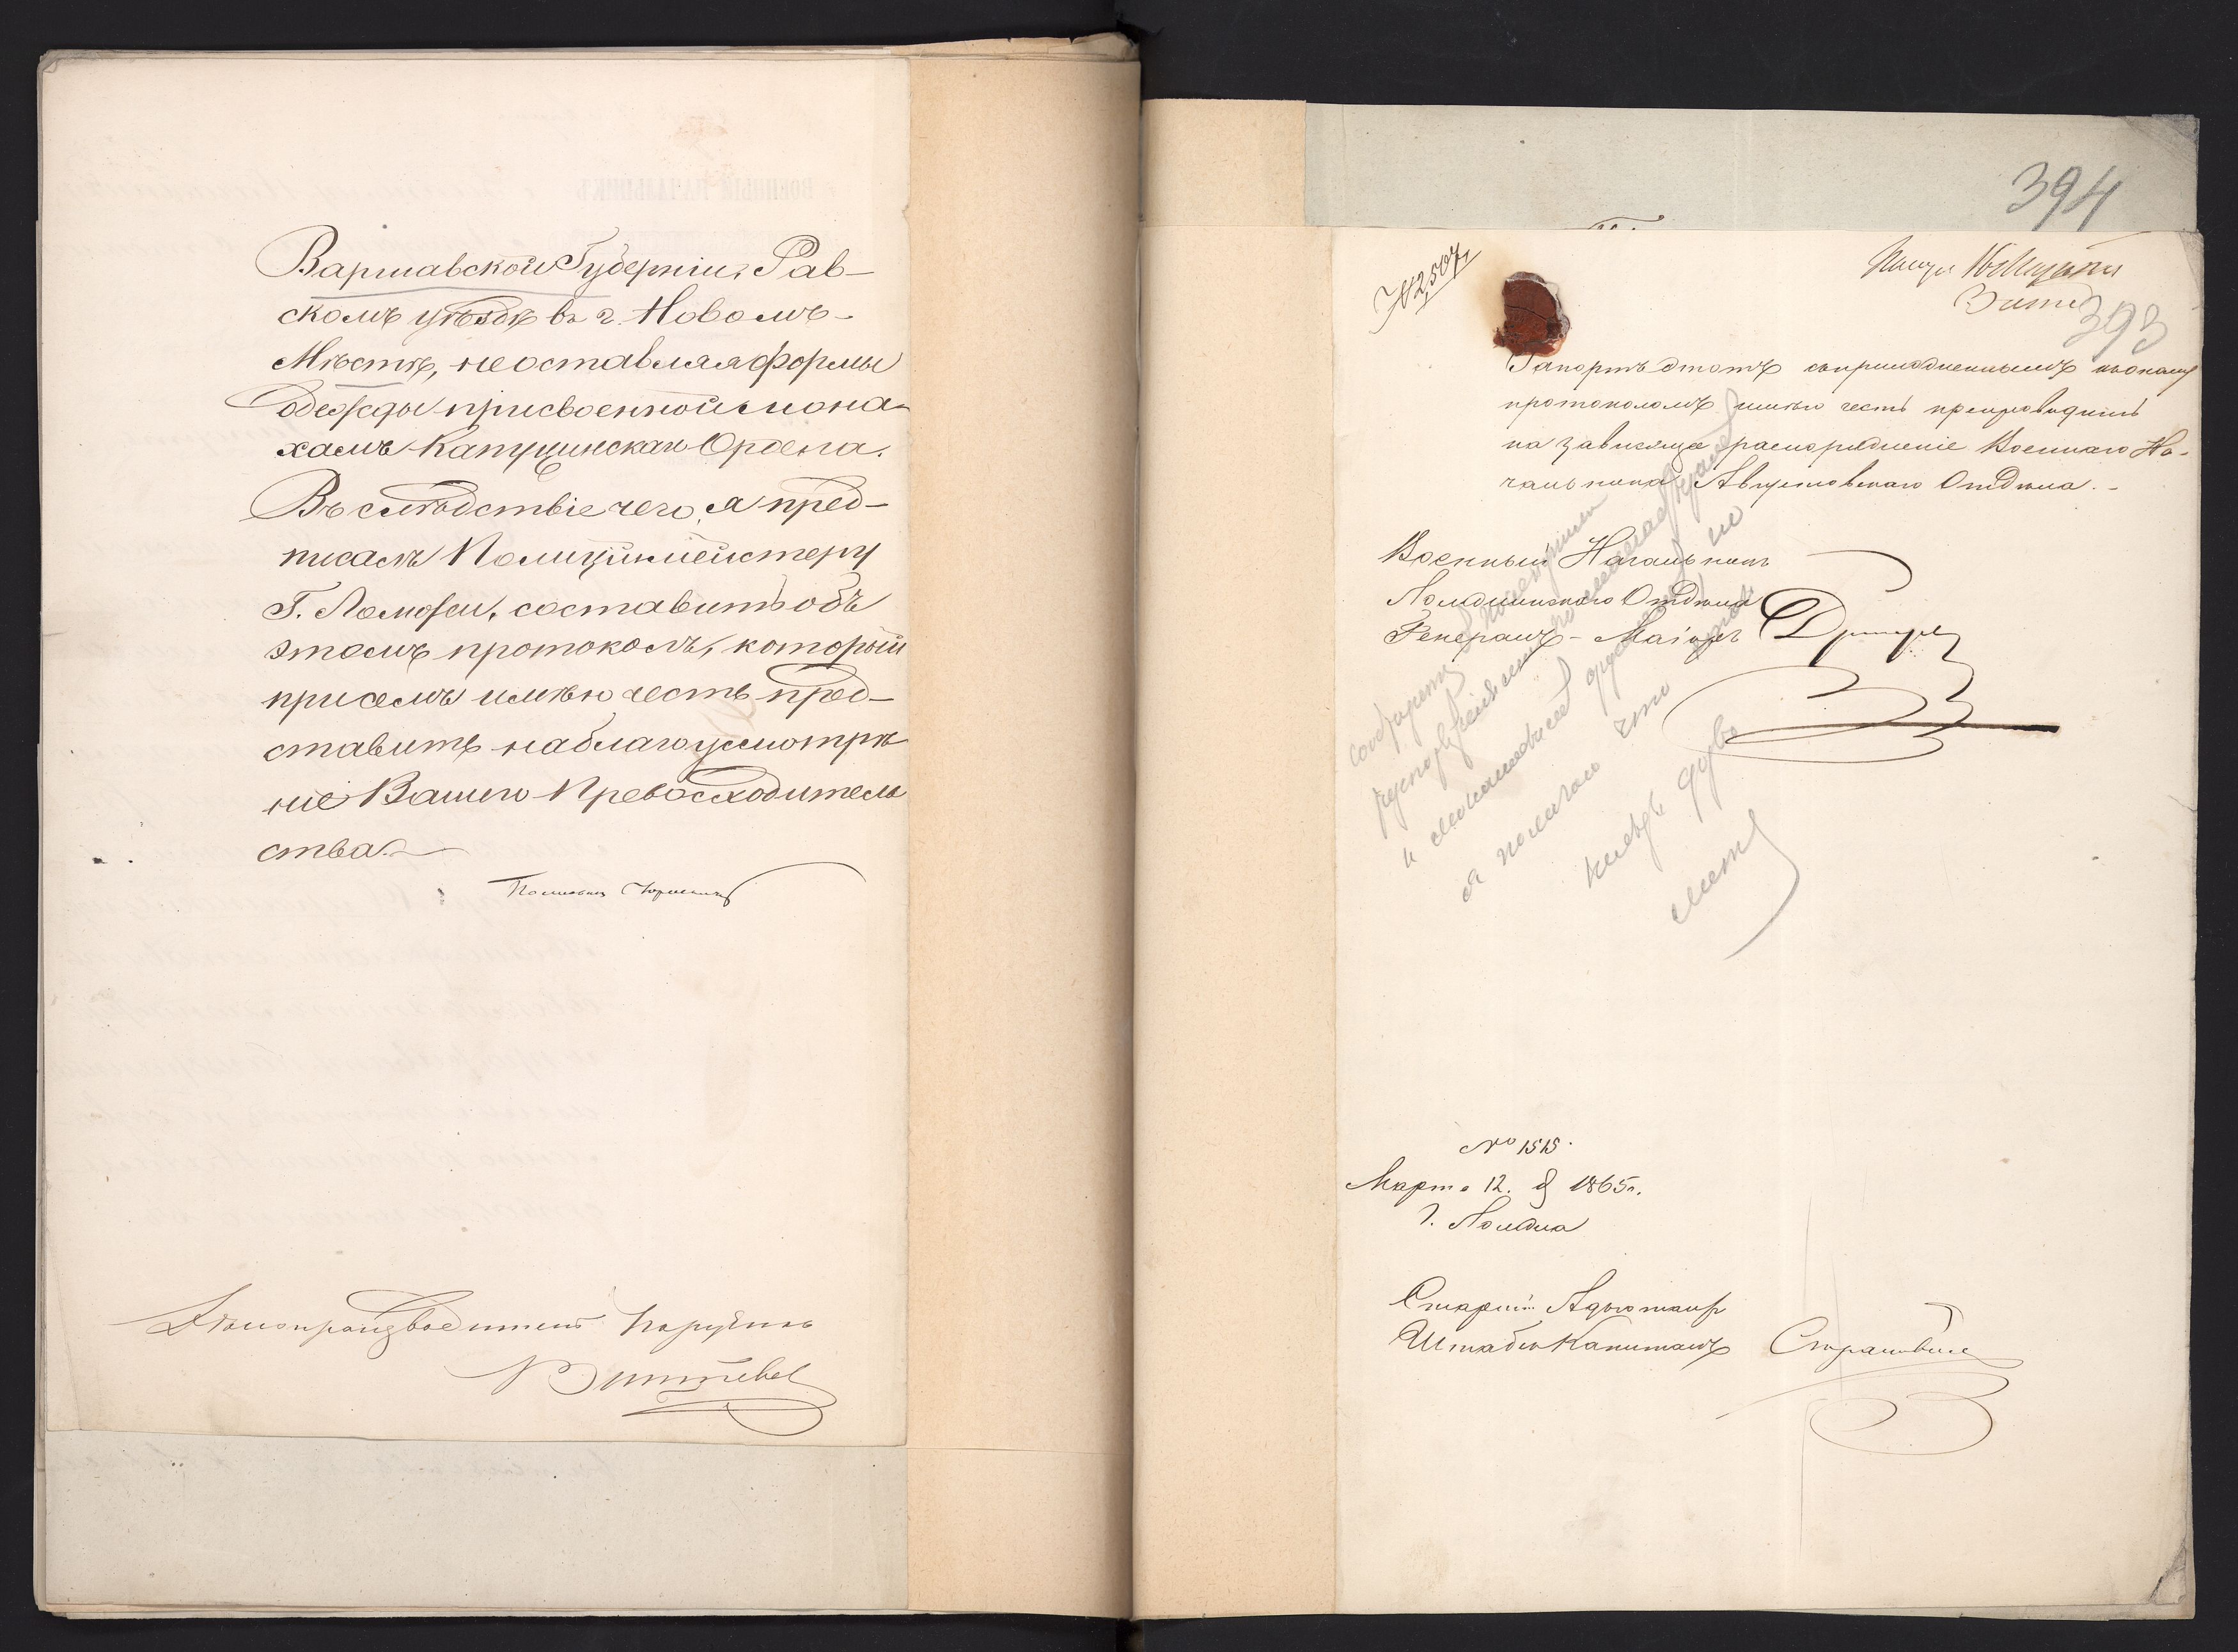 Варшавской Губерніи, Рав-
скомъ уѣздѣ въ г. Новомъ-
Мѣстѣ, не оставляя формы
одежды присвоенной мона-
хамъ Капуцинскаго Ордена.
Въ слѣдствіе чего, я пред-
писалъ Полиціймейстеру
Г. Ломжи, составить объ
этомъ протоколъ, который
при семъ имѣю честь пред-
ставить на благоусмотрѣ
ніе Вашего Превосходитель
ства.
Полковникъ
Дѣлопроизводитель Поручикъ
394
№ 2,507
393
Рапортъ этотъ съ приложеннымъ къ оному
протоколомъ имѣю честь препроводить
на зависящее распоряженіе Военнаго На-
чальника Августовскаго Отдѣла.-
Военный Начальникъ
Ломжинскаго Отдѣла
Генералъ-Маіоръ
я полагаю что
№ 1515.
Марта 12. д 1865 г.
Г. Ломжа
Старшій Адъютантъ
Штабсъ Капитанъ